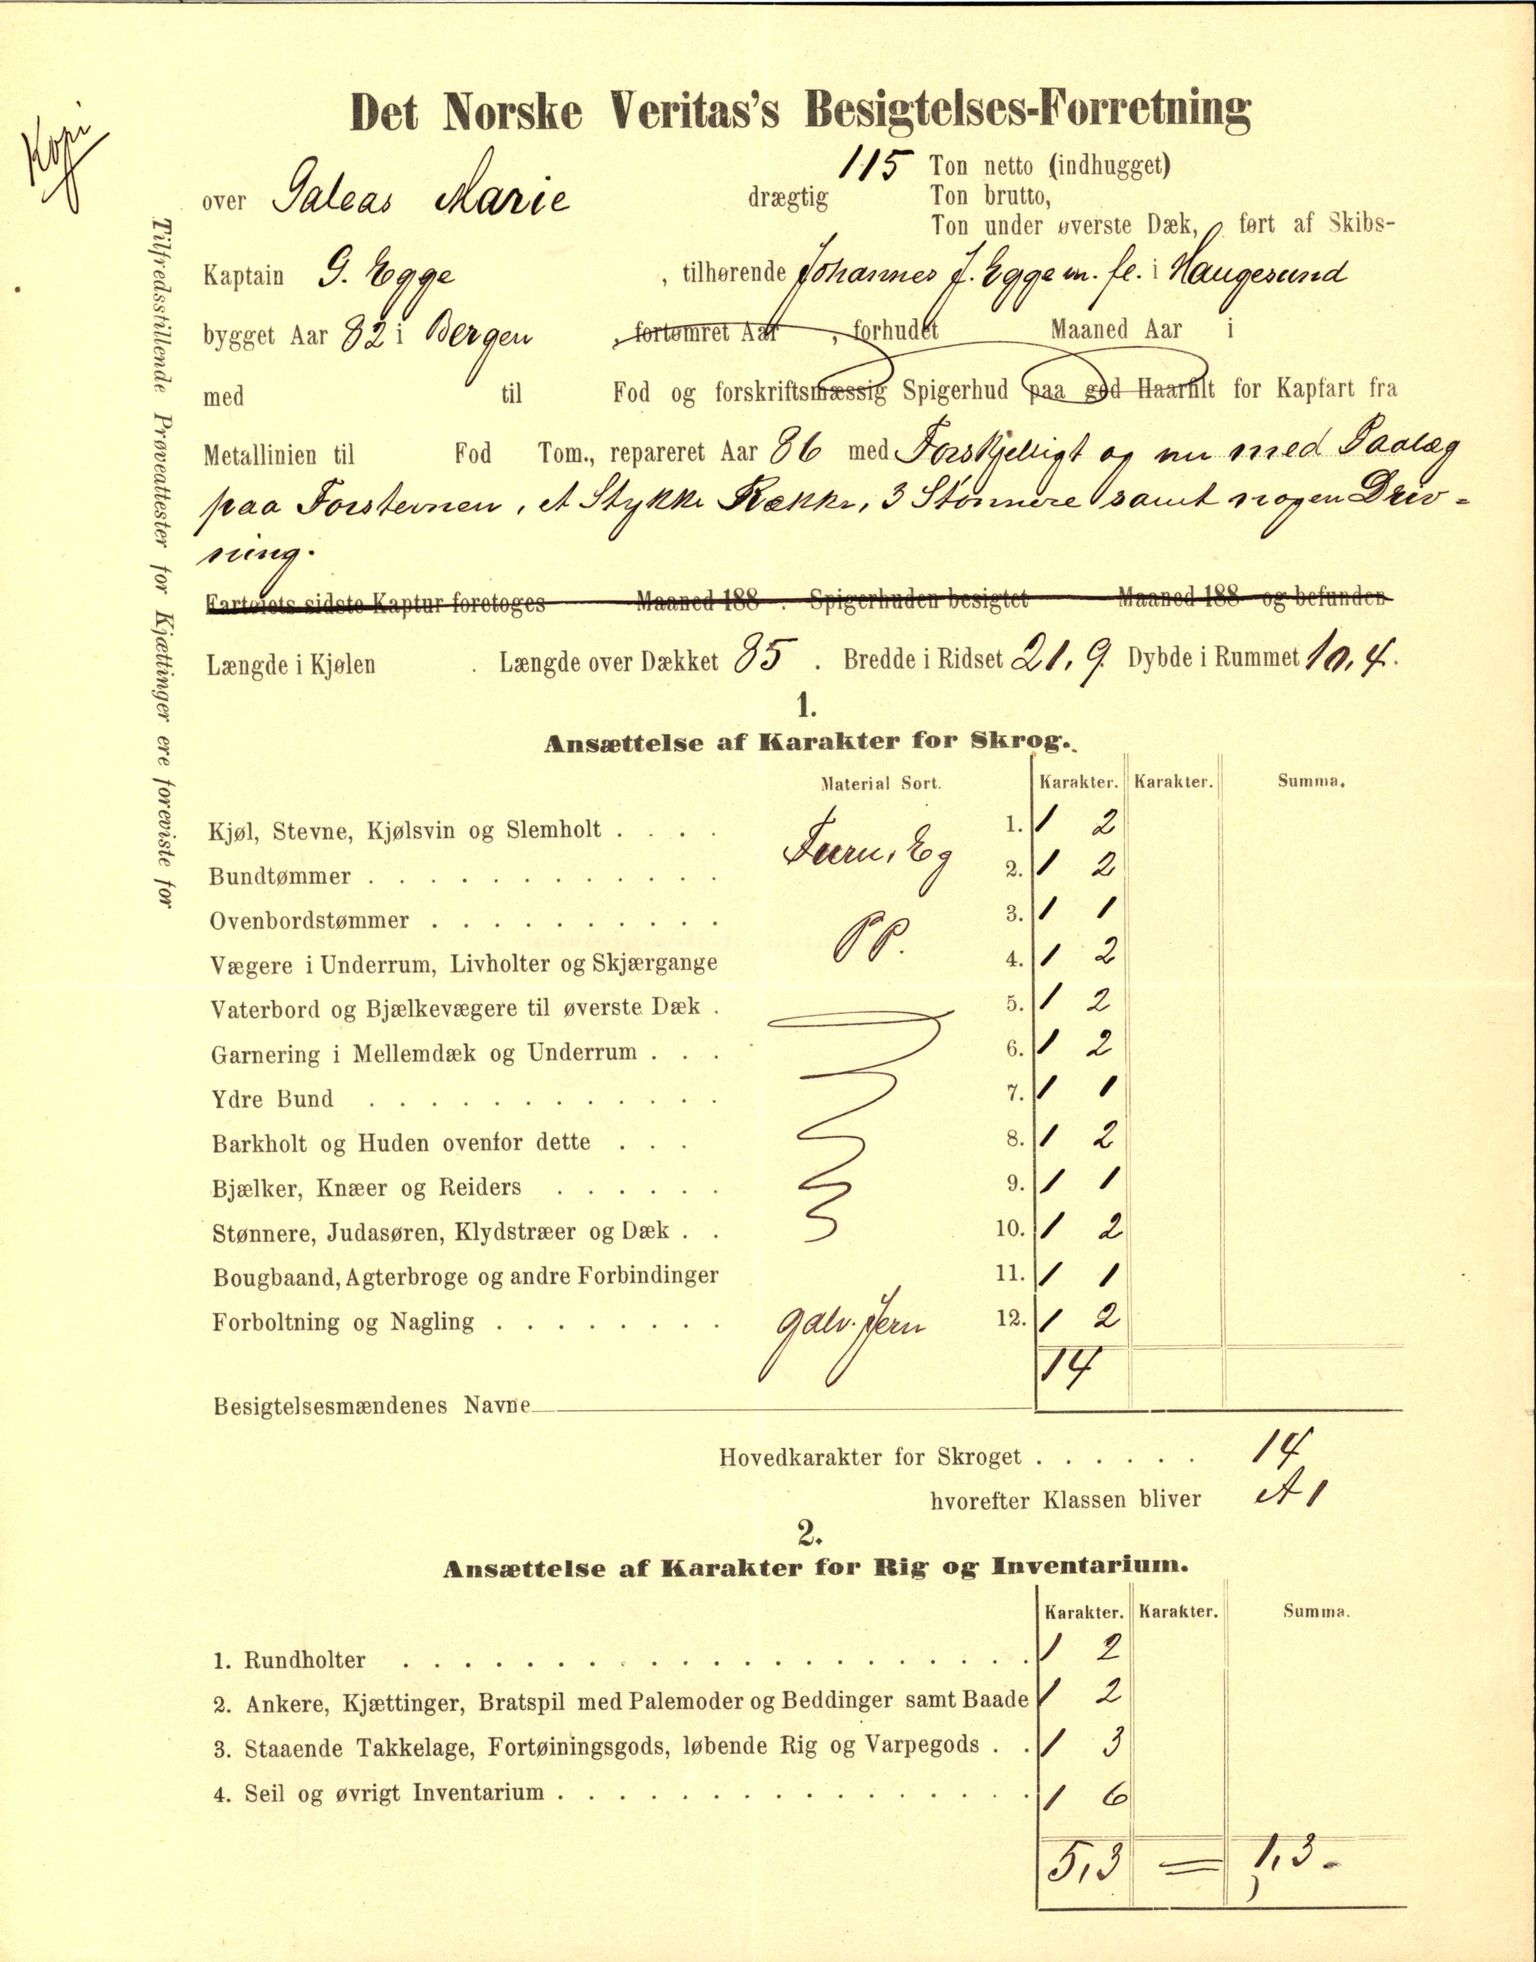 Kopi
Det Norske Veritas's Besigtelses-Forretning
115 Ton netto (indhugget)
over Galeas Marie drægtig Ton brutto,
Ton under øverste Dæk, ført af Skibs-
Kaptain G. Egge , tilhørende Johannes J. Egge m. fl. i Haugesund
bygget Aar 82 i Bergen , fortømret Aar , forhudet Maaned Aar i
med til Fod og forskriftsmæssig Spigerhud paa god Haarfilt for Kapfart fra
Metallinien til Fod Tom., repareret Aar 86 med Forskjelligt og nu med Paalæg
paa Forstevnen, et Stykke Række, 3 Stønnere samt nogen Driv-
ning.
Fartøiets sidste Kaptur foretoges Maaned 188 . Spigerhuden besigtet Maaned 188 og befunden
Længde i Kjølen . Længde over Dækket 85 . Bredde i Ridset 21,9 Dybde i Rummet 10,4.
1.
Ansættelse af Karakter for Skrog.
Material Sort. Karakter. Karakter. Summa.
Kjøl, Stevne, Kjølsvin og Slemholt . . . . 1. 1 2
Furu, Eg
Bundtømmer . . . . . . . . . . . . 2. 1 2
Ovenbordstømmer . . . . . . . . . . 3. 1 1
PP.
Vægere i Underrum, Livholter og Skjærgange 4. 1 2
Vaterbord og Bjælkevægere til øverste Dæk . 5. 1 2
Garnering i Mellemdæk og Underrum . . . 6. 1 2
Ydre Bund . . . . . . . . . . . . 7. 1 1
Barkholt og Huden ovenfor dette . . . 8. 1 2
Bjælker, Knæer og Reiders . . . . . . 9. 1 1
Stønnere, Judasøren, Klydstræer og Dæk . . 10. 1 2
Bougbaand, Agterbroge og andre Forbindinger 11. 1 1
Forboltning og Nagling . . . . . . . . galv. Jern 12. 1 2
14
Besigtelsesmændenes Navne
Hovedkarakter for Skroget . . . . . . 14
hvorefter Klassen bliver A 1
2.
Ansættelse af Karakter for Rig og Inventarium.
Karakter. Karakter. Summa.
1. Rundholter . . . . . . . . . . . . . . . . . . 1 2
2. Ankere, Kjættinger, Bratspil med Palemoder og Beddinger samt Baade 1 2
3. Staaende Takkelage, Fortøiningsgods, løbende Rig og Varpegods . . 1 3
4. Seil og øvrigt Inventarium . . . . . . . . . . . . . . . 1 6
5,3 = 1,3.
Tilfredsstillende Prøveattester for Kjættinger ere foreviste for